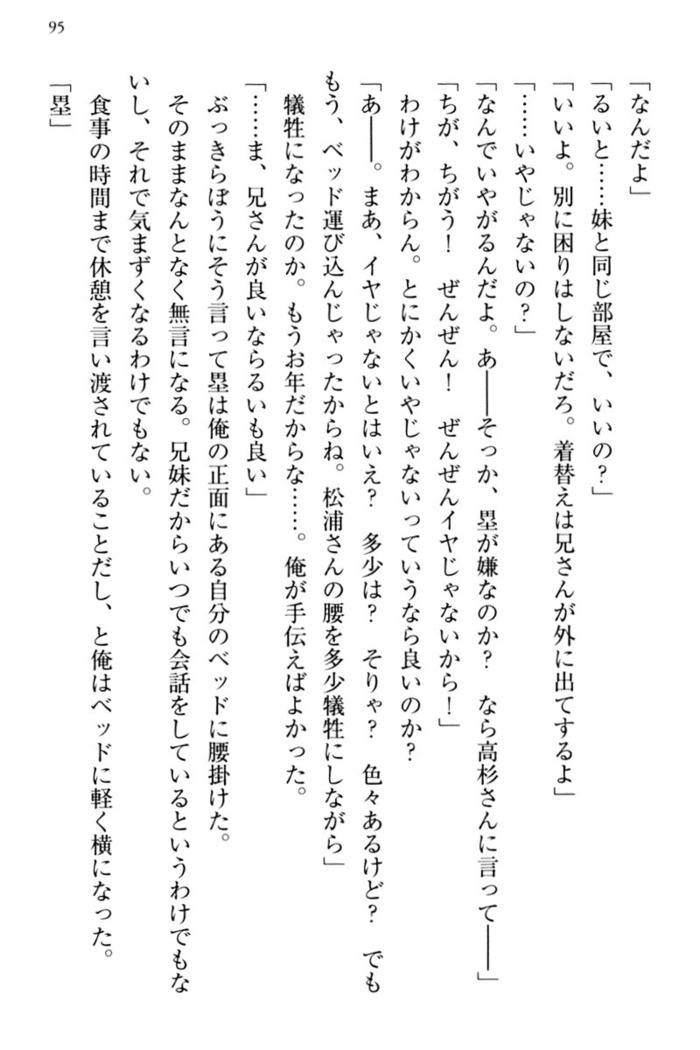 95
「なんだよ」
「るいと……妹と同じ部屋で、いいの？」
「いいよ。別に困りはしないだろ。着替えは兄さんが外に出てするよ」
「……いやじゃないの？」
「なんでいやがるんだよ。あ――そっか、塁が嫌なのか？　なら高杉さんに言って――」
「ちが、ちがう！　ぜんぜん！　ぜんぜんイヤじゃないから！」
わけがわからん。とにかくいやじゃないっていうなら良いのか？
「あ――。まあ、イヤじゃないとはいえ？　多少は？　そりゃ？　色々あるけど？　でも
もう、ベッド運び込んじゃったからね。松浦さんの腰を多少犠牲にしながら」
犠牲になったのか。もうお年だからな……。俺が手伝えばよかった。
「……ま、兄さんが良いならるいも良い」
ぶっきらぼうにそう言って塁は俺の正面にある自分のベッドに腰掛けた。
そのままなんとなく無言になる。兄妹だからいつでも会話をしているというわけでもな
いし、それで気まずくなるわけでもない。
食事の時間まで休憩を言い渡されていることだし、と俺はベッドに軽く横になった。
「塁」